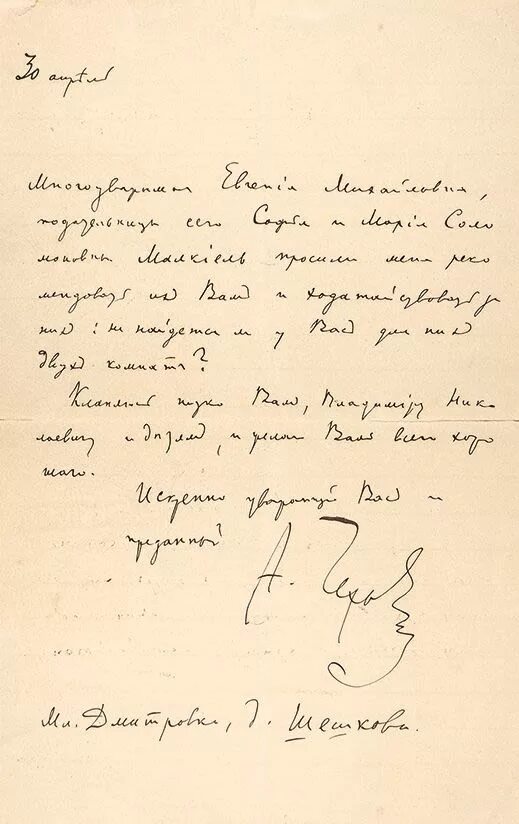 30 апрѣль
Многоуважаемая Евгенія Михайловна,
подательницы сего Софья и Марія Соло
моновны Малкіель просили меня реко
мендовать ихъ Вамъ и ходатайствовать за
нихъ: не найдется ли у Васъ для нихъ
двухъ комнатъ?
Кланяюсь низко Вамъ, Владиміру Ник
лаевичу и дѣтямъ, и желаю Вамъ всего хоро
шаго.
Искренно уважающій Васъ и
преданный
А. Чеховъ
Мл. Дмитровка, д. Шешкова.